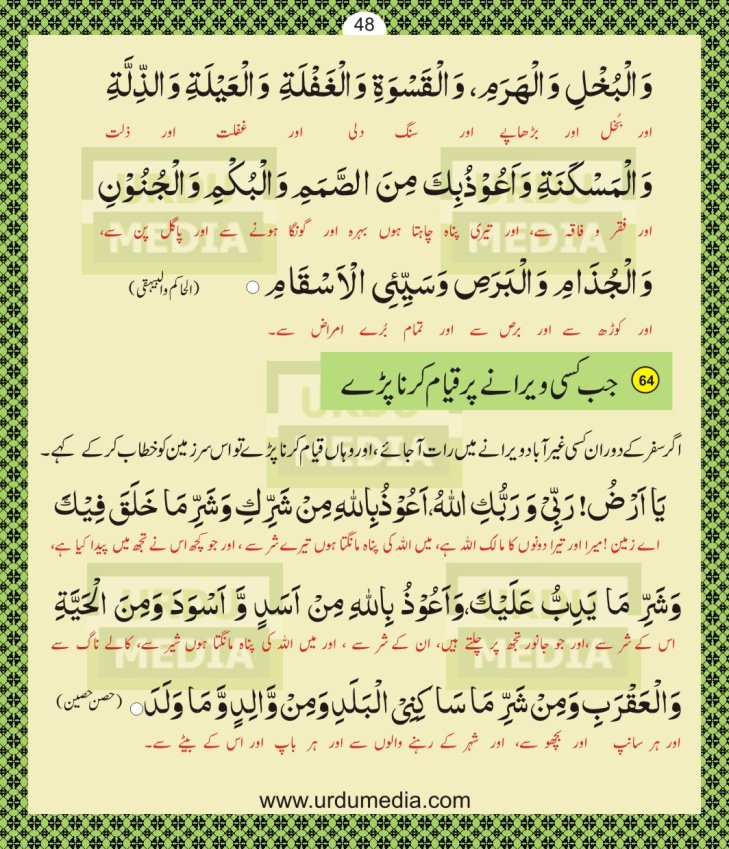 48
وَالْبُخْلِ وَالْهَرَمِ، وَالْقَسْوَةِ وَالْغَفْلَةِ وَالْعَيْلَةِ وَالذِّلَّةِ
اور بُخل اور بڑھاپے اور سنگ دلی اور غفلت اور ذلت
وَالْمَسْكَنَةِ وَاَعُوْذُبِكَ مِنَ الصَّمَمِ وَالْبُكْمِ وَالْجُنُوْنِ
اور فقر و فاقہ سے، اور تیری پناہ چاہتا ہوں بہرہ اور گونگا ہونے سے اور پاگل پن سے،
وَالْجُذَامِ وَالْبَرَصِ وَسَيِّئِى الْاَسْقَامِ ○ (الحاکم والبیہقی)
اور کوڑھ سے اور برص سے اور تمام بُرے امراض سے۔
64 جب کسی ویرانے پر قیام کرنا پڑے
اگر سفر کے دوران کسی غیر آباد ویرانے میں رات آ جائے، اور وہاں قیام کرنا پڑے تو اس سرزمین کو خطاب کر کے کہے۔
يَا اَرْضُ! رَبِّىْ وَ رَبُّكِ اللهُ، اَعُوْذُبِاللهِ مِنْ شَرِّكِ وَشَرِّ مَا خَلَقَ فِيْكَ
اے زمین! میرا اور تیرا دونوں کا مالک اللہ ہے، میں اللہ کی پناہ مانگتا ہوں تیرے شر سے، اور جو کچھ اس نے تجھ میں پیدا کیا ہے،
وَشَرِّ مَا يَدِبُّ عَلَيْكَ، وَاَعُوْذُ بِاللهِ مِنْ اَسَدٍ وَّ اَسْوَدَ وَمِنَ الْحَيَّةِ
اس کے شر سے، اور جو جانور تجھ پر چلتے ہیں، ان کے شر سے، اور میں اللہ کی پناہ مانگتا ہوں شیر سے، کالے ناگ سے
وَالْعَقْرَبِ وَمِنْ شَرِّ مَا سَا كِنِىْ الْبَلَدِ وَمِنْ وَّالِدٍ وَّ مَا وَلَدَ ○ (حصن حصین)
اور ہر سانپ اور بچھو سے، اور شہر کے رہنے والوں سے اور ہر باپ اور اس کے بیٹے سے۔
www.urdumedia.com